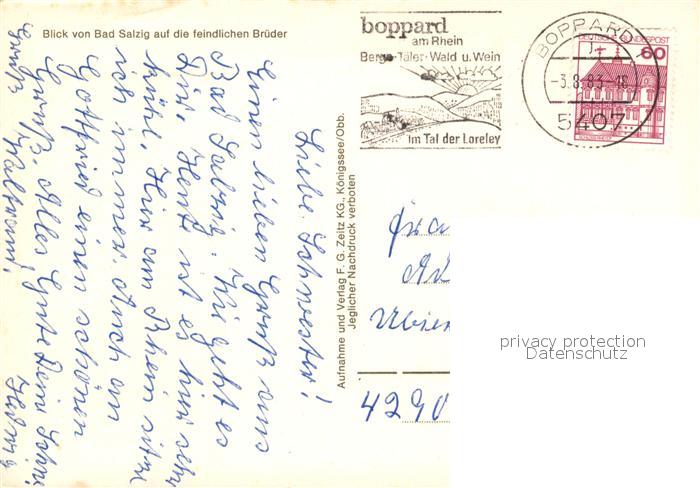 Blick von Bad Salzig auf die feindlichen Brüder
boppard
am Rhein
Berge·Täler·Wald u. Wein
im Tal der Loreley
BOPPARD 1
-3.8.83-18
5407
DEUTSCHE BUNDESPOST
60
Aufnahme und Verlag F. G. Zeitz KG., Königssee/Obb.
Jeglicher Nachdruck verboten
Liebe Schwester!
Einen lieben Gruß aus
Bad Salzig. Wie geht es
Dir. Heute ist es hier sehr
kühl. Hier am Rhein sitze
ich immer. Auch an
Gottfried einen schönen
Gruß. Alles Gute Dein
Gruß Waltraud.
Frau
4290
privacy protection
Datenschutz